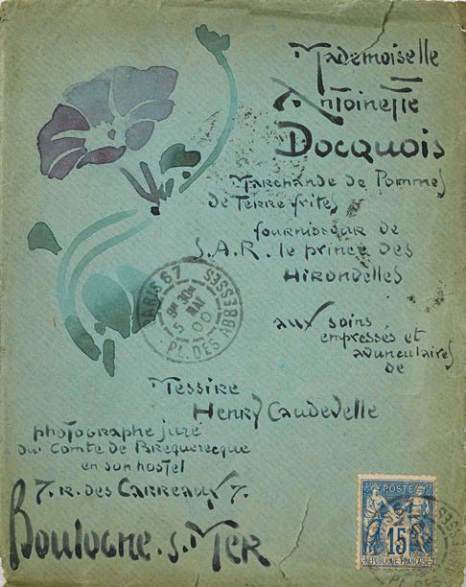 Mademoiselle
Antoinette
Docquois
Marchande de Pommes
de Terre frites
fournisseur de
S.A.R. le prince des
Hirondelles
aux soins
empressés et
avunculaires
de
Messire
Henry Caudevelle
photographe juré
du Comte de Brequerecque
en son hostel
7. r. des Carreaux 7.
Boulogne. s. Mer
PARIS 67
5 MAI 00
PL. DES ABBESSES
POSTE
15
REPUBLIQUE FRANCAISE